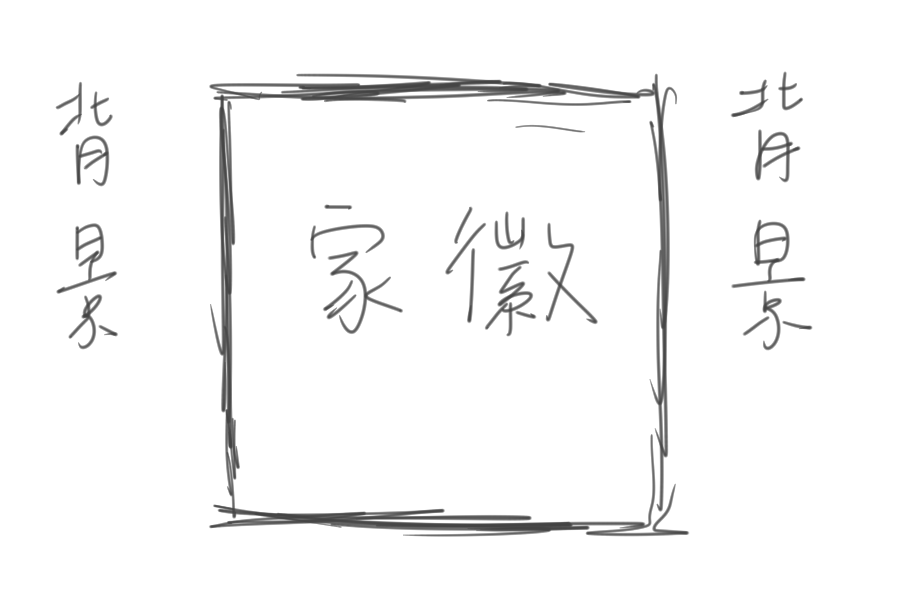 背景
家徽
背景